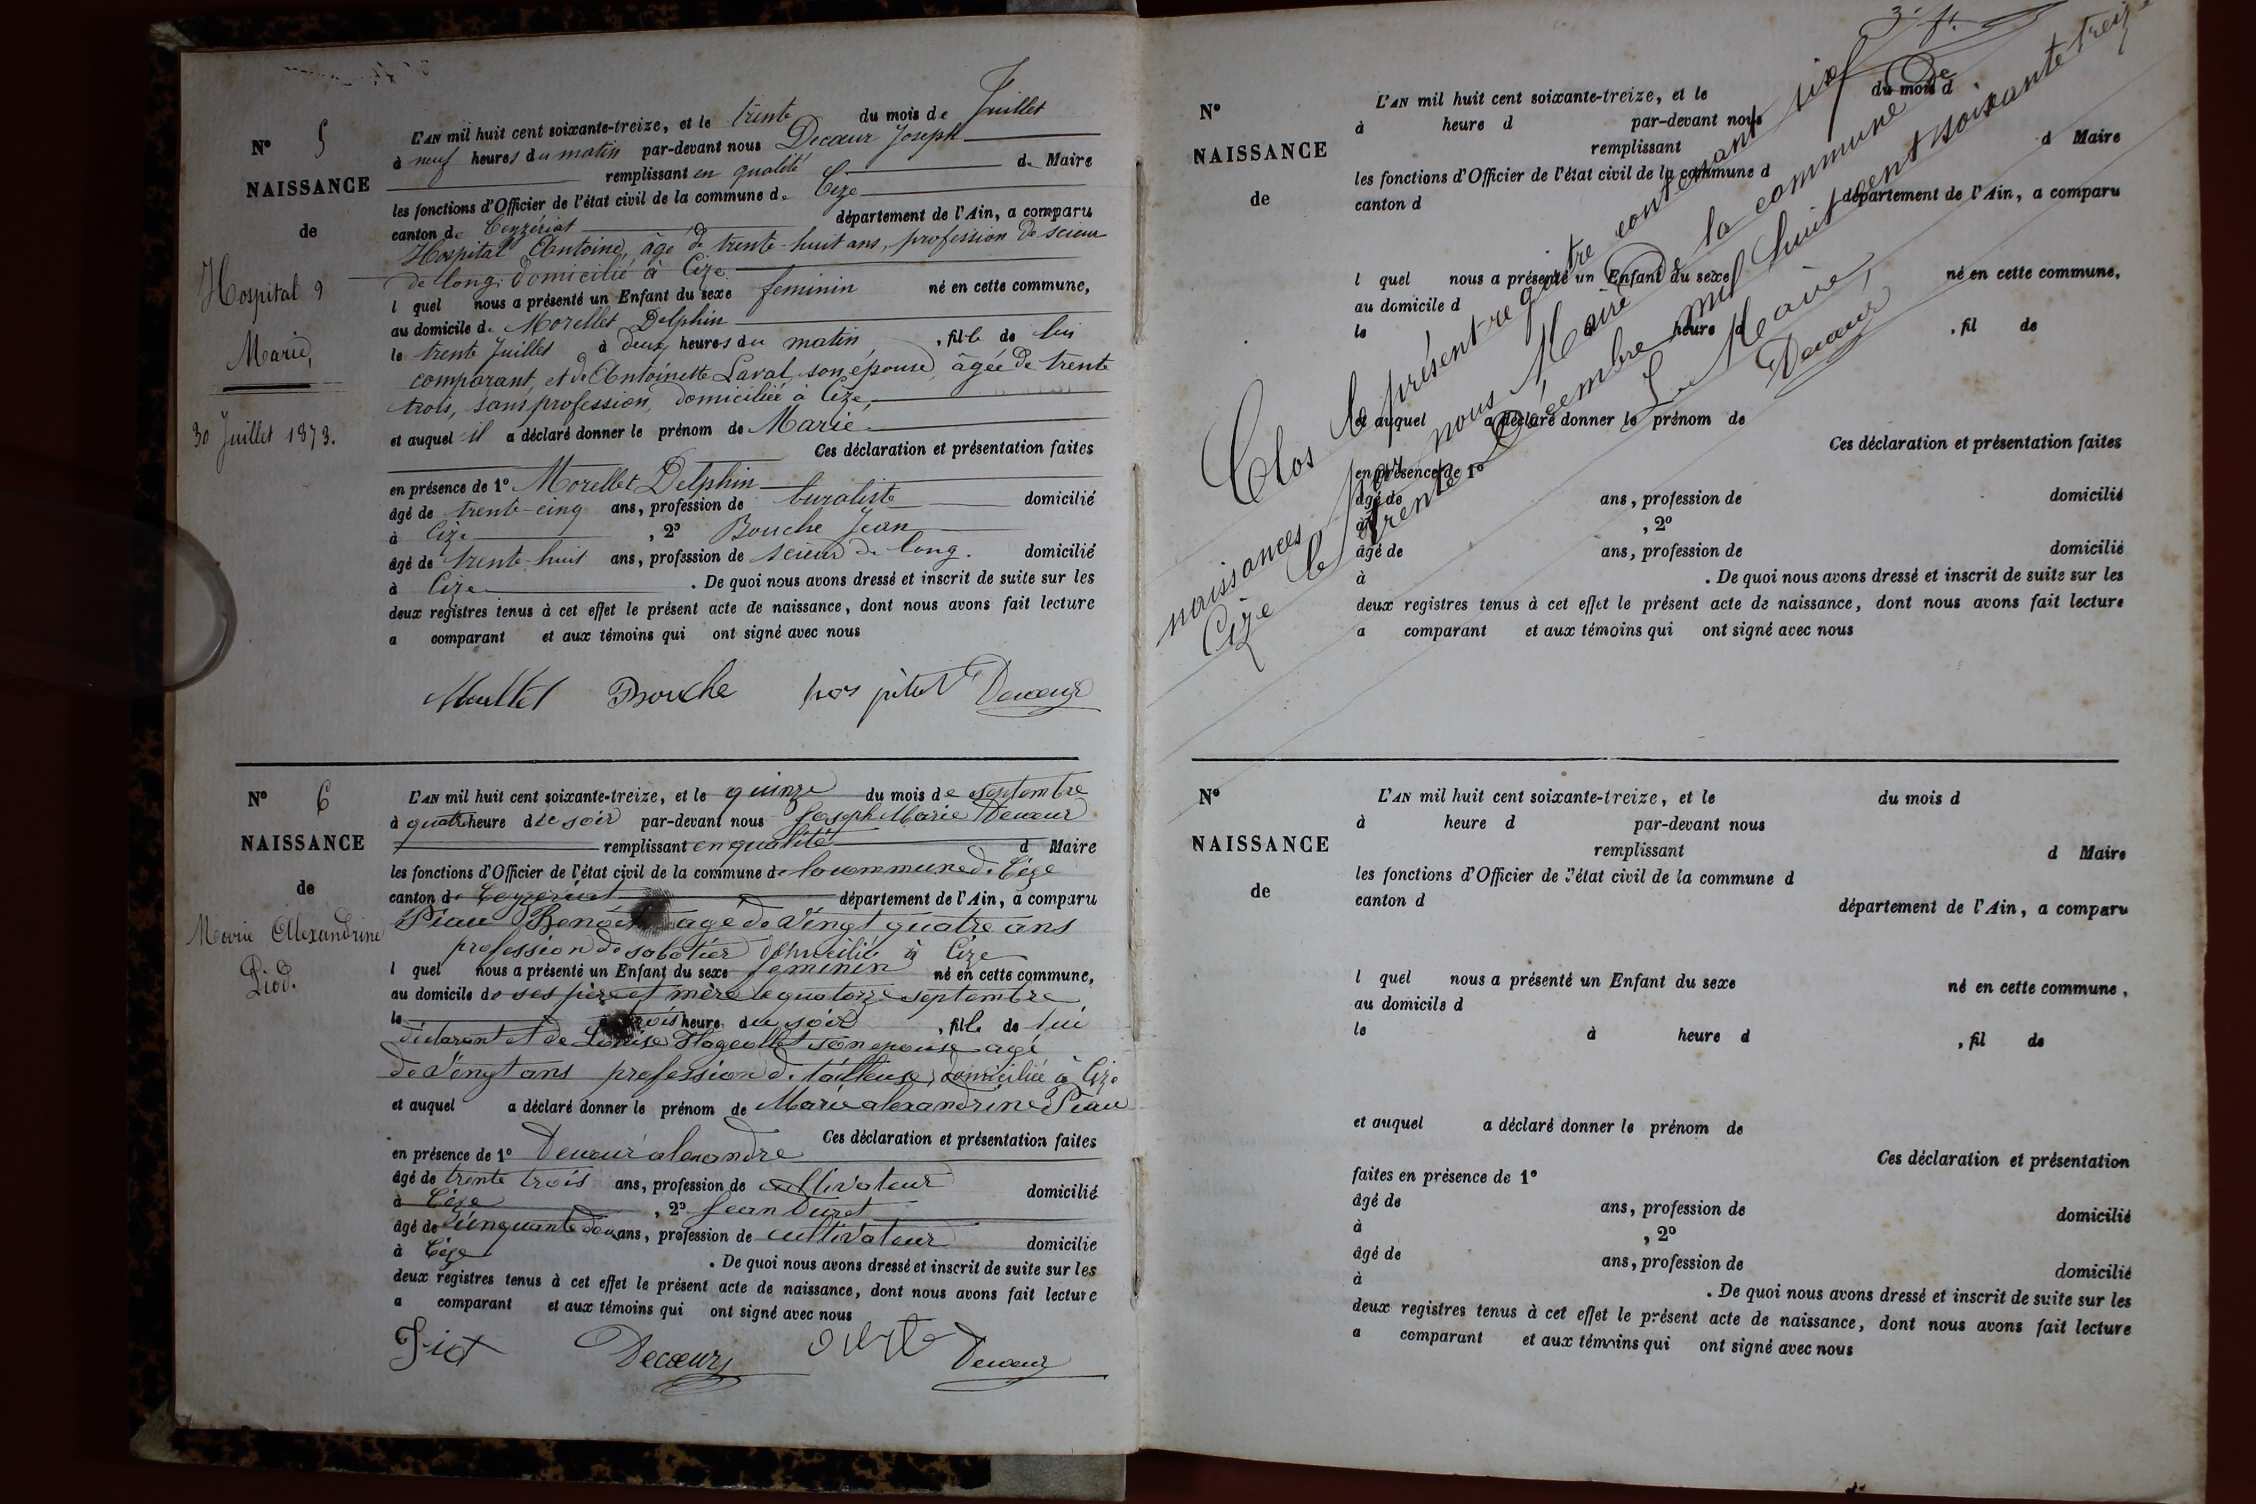 N° 5
NAISSANCE
de
Hospital
Marie,
30 Juillet 1873.
L'AN mil huit cent soixante-treize, et le trente du mois de Juillet
à neuf heures du matin par-devant nous Decœur Joseph
remplissant en qualité de Maire
les fonctions d'Officier de l'état civil de la commune de Cize
canton de Ceyzériat département de l'Ain, a comparu
Hospital Antoine, âgé de trente-huit ans, profession de scieur
de long, domicilié à Cize
l quel nous a présenté un Enfant du sexe feminin né en cette commune,
au domicile de Morellet Delphin
le trente Juillet à deux heures du matin, fille de lui
comparant, et de Antoinette Laval son épouse, âgée de trente
trois, sans profession, domiciliée à Cize,
et auquel il a déclaré donner le prénom de Marie,
Ces déclaration et présentation faites
en présence de 1° Morellet Delphin
âgé de trente-cinq ans, profession de buraliste domicilié
à Cize, 2° Bouche Jean
âgé de trente-huit ans, profession de scieur de long. domicilié
à Cize. De quoi nous avons dressé et inscrit de suite sur les
deux registres tenus à cet effet le présent acte de naissance, dont nous avons fait lecture
a comparant et aux témoins qui ont signé avec nous
Bouche hos pital Decœur
N° 6
NAISSANCE
de
Marie Alexandrine
Piod.
L'AN mil huit cent soixante-treize, et le quinze du mois de septembre
à quatre heure d le soir par-devant nous Joseph Marie Decœur
remplissant en qualité d Maire
les fonctions d'Officier de l'état civil de la commune de la commune de Cize
canton de Ceyzeriat département de l'Ain, a comparu
Piau Benoit agé de vingt quatre ans
profession de sabotier domicilié à Cize
l quel nous a présenté un Enfant du sexe feminin né en cette commune,
au domicile de ses père et mère le quatorze septembre
le à trois heure du soir, fille de lui
déclarant et de Louise Flageollet son epouse agé
de vingt ans profession de tailleuse, domiciliée à Cize
et auquel a déclaré donner le prénom de Marie alexandrine Piau
Ces déclaration et présentation faites
en présence de 1° Decœur alexandre
âgé de trente trois ans, profession de cultivateur domicilié
à Cize, 2° Jean Duret
âgé de cinquante deux ans, profession de cultivateur domicilie
à Cize. De quoi nous avons dressé et inscrit de suite sur les
deux registres tenus à cet effet le présent acte de naissance, dont nous avons fait lecture
a comparant et aux témoins qui ont signé avec nous
Decœur Decœur
N°
NAISSANCE
de
L'AN mil huit cent soixante-treize, et le du mois d
à heure d par-devant nous
remplissant d Maire
les fonctions d'Officier de l'état civil de la commune d
canton d département de l'Ain, a comparu
l quel nous a présenté un Enfant du sexe né en cette commune,
au domicile d
le à heure d, fil de
et auquel a déclaré donner le prénom de
Ces déclaration et présentation faites
en présence de 1°
âgé de ans, profession de domicilié
à, 2°
âgé de ans, profession de domicilié
à. De quoi nous avons dressé et inscrit de suite sur les
deux registres tenus à cet effet le présent acte de naissance, dont nous avons fait lecture
a comparant et aux témoins qui ont signé avec nous
Clos le présent registre contenant six
naissances par nous Maire de la commune de
Cize le trente Décembre mil huit cent soixante treize
Le Maire,
Decœur
N°
NAISSANCE
de
L'AN mil huit cent soixante-treize, et le du mois d
à heure d par-devant nous
remplissant d Maire
les fonctions d'Officier de l'état civil de la commune d
canton d département de l'Ain, a comparu
l quel nous a présenté un Enfant du sexe né en cette commune,
au domicile d
le à heure d, fil de
et auquel a déclaré donner le prénom de
Ces déclaration et présentation
faites en présence de 1°
âgé de ans, profession de domicilié
à, 2°
âgé de ans, profession de domicilié
à. De quoi nous avons dressé et inscrit de suite sur les
deux registres tenus à cet effet le présent acte de naissance, dont nous avons fait lecture
a comparant et aux témoins qui ont signé avec nous